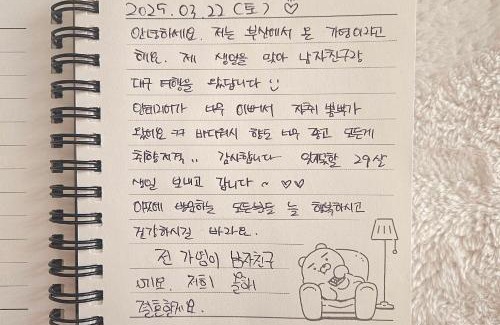 2025.03.22 (토) ♡
안녕하세요. 저는 부산에서 온 가영이라고
해요. 제 생일을 맞아 남자친구랑
대구 여행을 왔답니다 :)
인테리어가 너무 이뻐서 자취 뽐뿌가
왔어요 ㅋㅋ 바디워시 향도 너무 좋고 모든게
취향저격.. 감사합니다 잊지못할 29살
생일 보내고 갑니다~ ♡♡
이곳에 방문하는 모든분들 늘 행복하시고
건강하시길 바라요.
전 가영이 남자친구
저희 올해
결혼할게요.